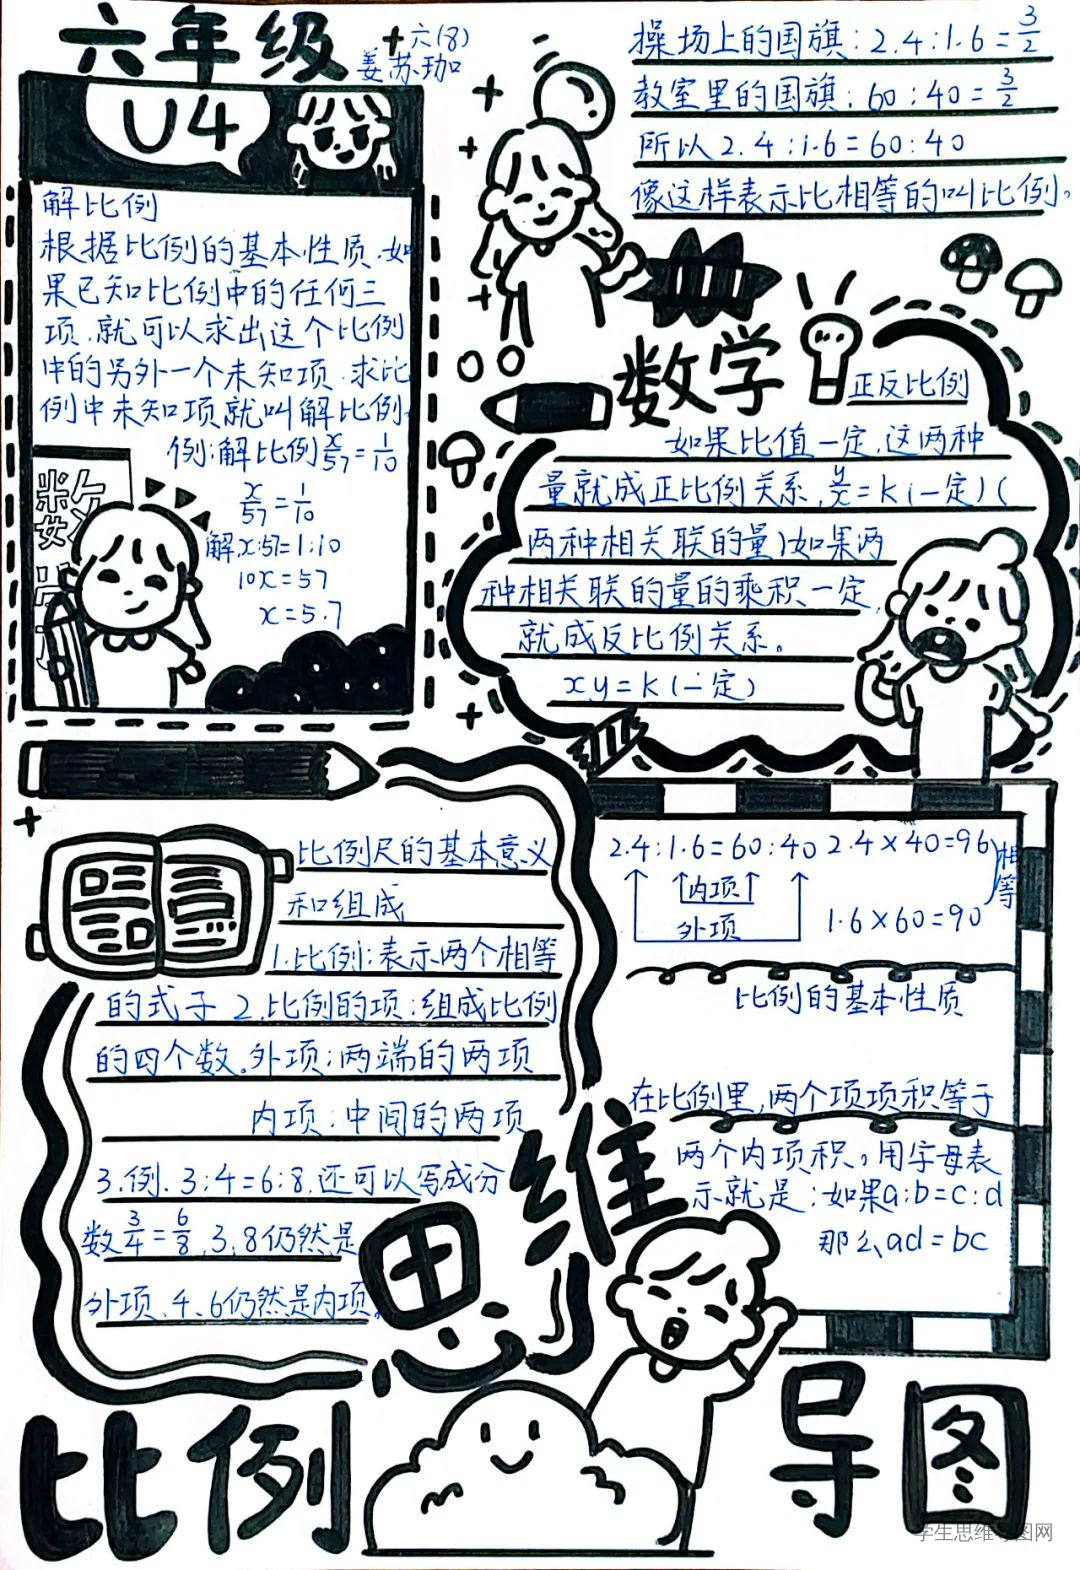 六年级
六(8)
姜苏珈
U4
操场上的国旗:2.4:1.6=3/2
教室里的国旗:60:40=3/2
所以2.4:1.6=60:40
像这样表示比相等的叫比例。
解比例
根据比例的基本性质.如
果已知比例中的任何三
项.就可以求出这个比例
中的另外一个未知项.求比
例中未知项就叫解比例.
例:解比例x/57=1/10
x/57=1/10
解x:57=1:10
10x=57
x=5.7
数
数学
正反比例
如果比值一定.这两种
量就成正比例关系,y/x=k(一定)(
两种相关联的量)如果两
种相关联的量的乘积一定,
就成反比例关系。
xy=k(一定)
比例尺的基本意义
和组成
1.比例:表示两个相等
的式子 2.比例的项:组成比例
的四个数。外项:两端的两项
内项:中间的两项
3.例.3:4=6:8.还可以写成分
数3/4=6/8.3、8仍然是
外项、4、6仍然是内项。
2.4:1.6=60:40 2.4×40=96
相等
内项
外项
1.6×60=90
比例的基本性质
在比例里,两个项项积等于
两个内项积。用字母表
示就是:如果a:b=c:d
那么ad=bc
思维
比例
导图
学生思维导图网